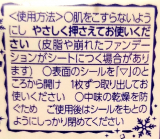 <使用方法>○肌をこすらないよう
にし やさしく押さえてお使いくだ
さい (皮脂や崩れたファンデー
ションがシートにつく場合があり
ます) ○表面のシールを[▽]のと
ころから開け 1枚ずつ取り出して
お使いください ○中味の乾燥を防
ぐため ご使用後はシールをもとの
ようにしっかり閉めてください